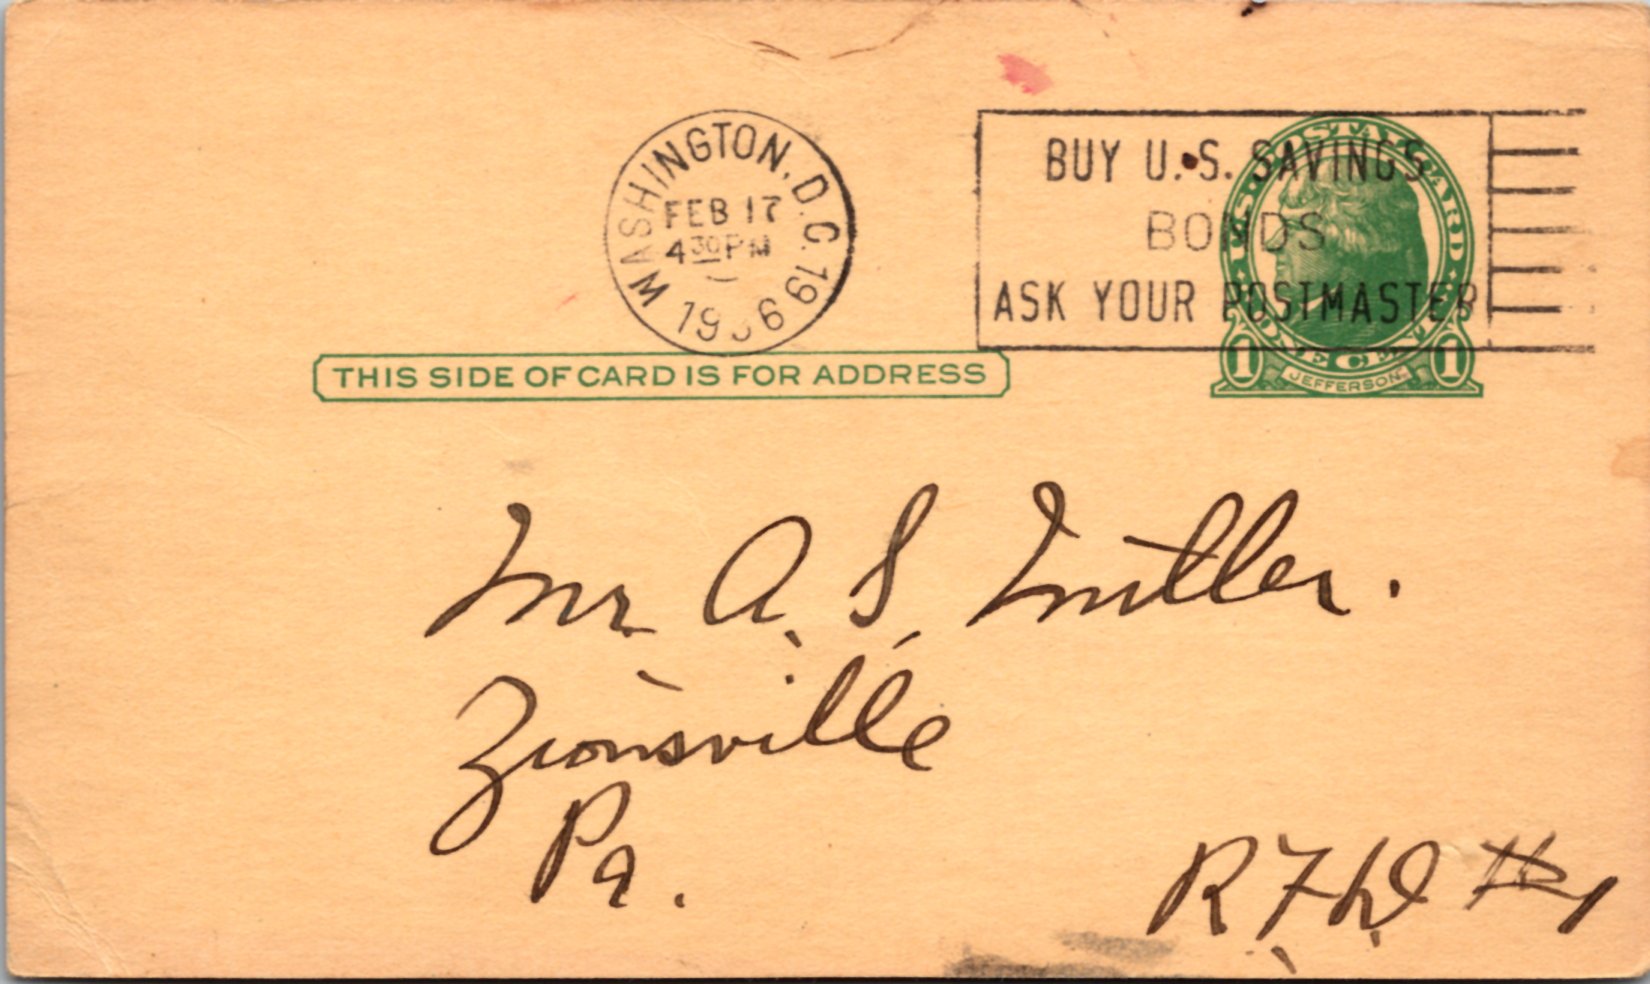 WASHINGTON, D.C.
FEB 17
4 30 PM
BUY U.S. SAVINGS
BONDS
ASK YOUR POSTMASTER
U.S. POSTAL CARD
ONE CENT
1 JEFFERSON 1
THIS SIDE OF CARD IS FOR ADDRESS
Mr. A. S.
Zionsville
Pa.
R. F. D. #1